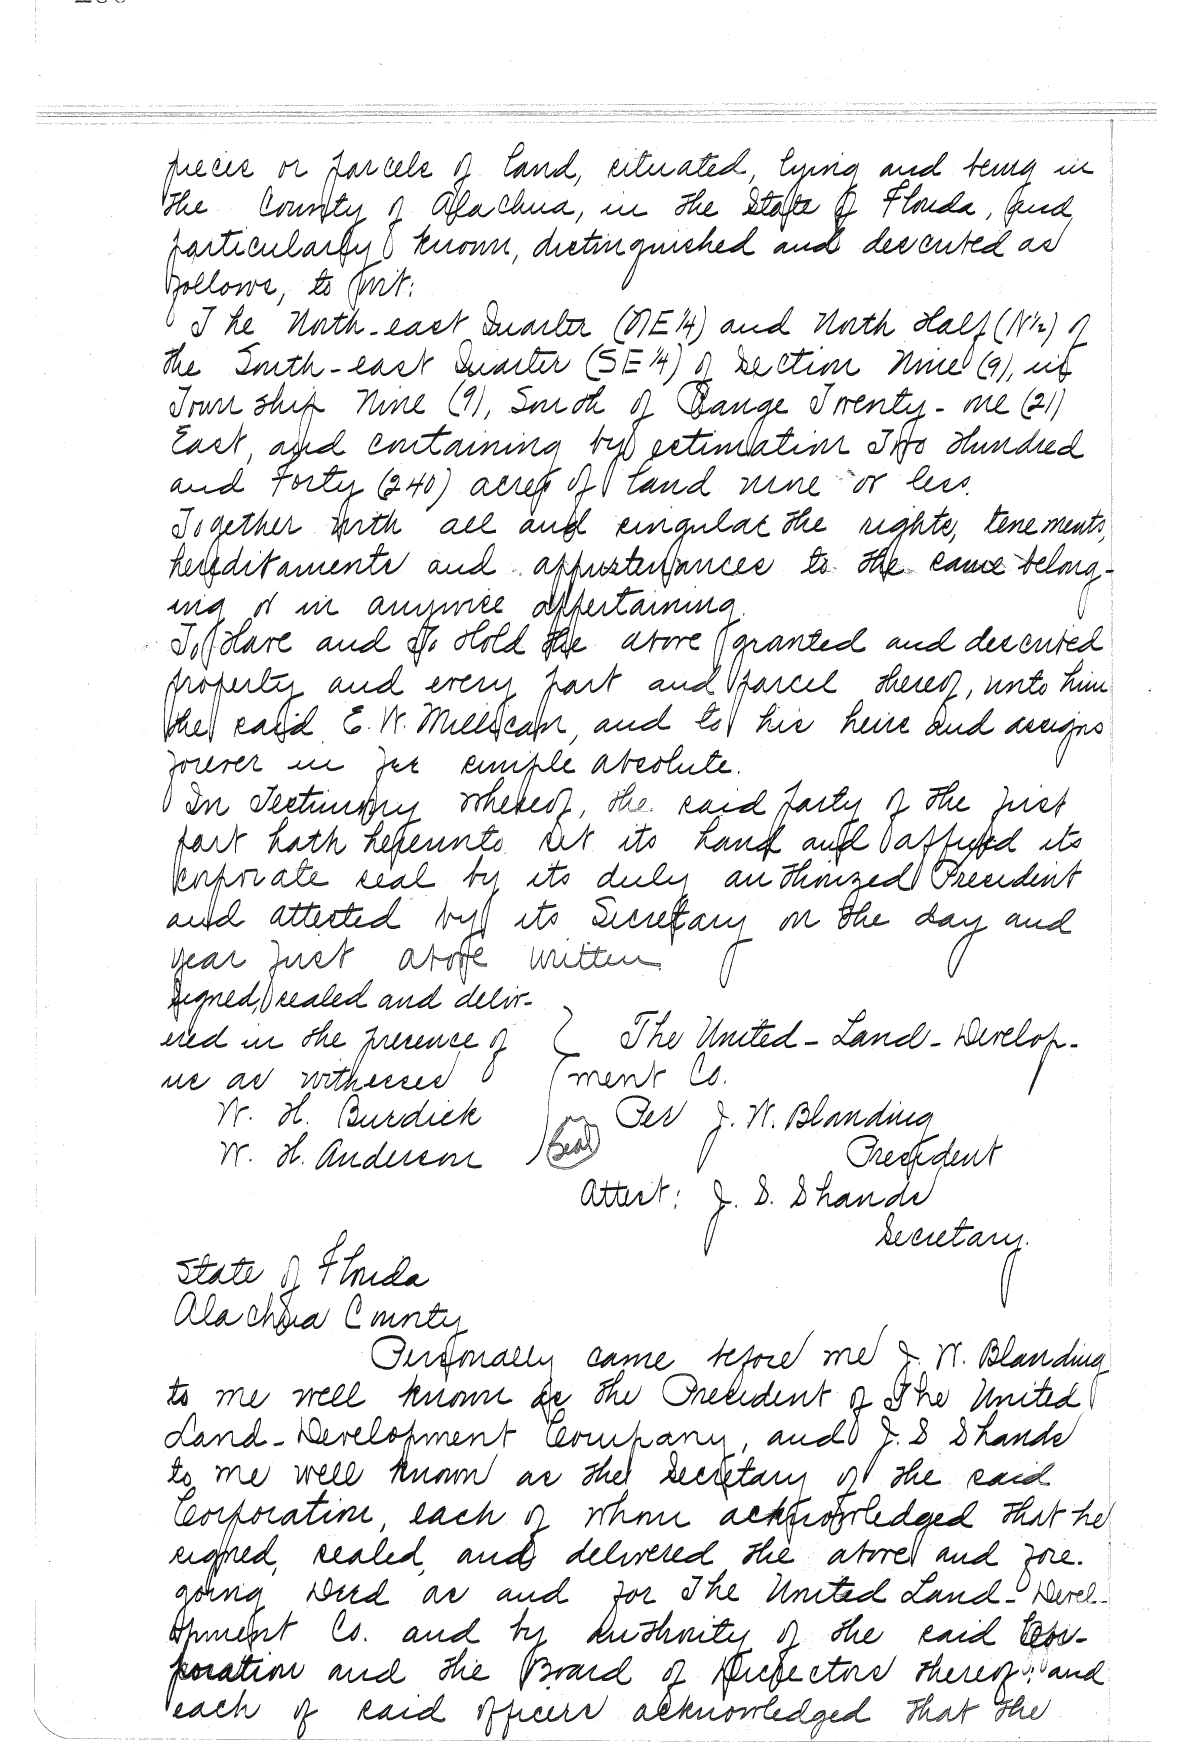 pieces or parcels of land, situated, lying and being in
the County of Alachua, in the State of Florida, and
particularly known, distinguished and described as
follows, to wit:
The North-east Quarter (NE 1/4) and North Half (N 1/2) of
the South-east Quarter (SE 1/4) of Section Nine (9), in
Town ship Nine (9), South of Range Twenty-one (21)
East, and containing by estimation Two Hundred
and Forty (240) acres of land more or less.
Together with all and singular the rights, tenements,
hereditaments and appurtenances to the same belong-
ing or in anywise appertaining.
To Have and To Hold the above granted and described
property and every part and parcel thereof, unto him
the said E. W. Millican, and to his heirs and assigns
forever in fee simple absolute.
In Testimony whereof, the said party of the first
part hath hereunto set its hand and affixed its
corporate seal by its duly authorized President
and attested by its Secretary on the day and
year first above written
Signed, sealed and deliv-
ered in the presence of
us as witnesses
W. H. Burdick
W. H. Anderson
The United-Land-Develop-
ment Co.
Per J. W. Blanding
President
Seal
Attest: J. S. Shands
Secretary.
State of Florida
Alachua County
Personally came before me J. W. Blanding
to me well known as the President of The United
Land-Development Company, and J. S Shands
to me well known as the Secretary of the said
Corporation, each of whom acknowledged that he
signed, sealed, and delivered the above and fore-
going Deed as and for The United Land-Devel-
opment Co. and by authority of the said Cor-
poration and the Board of Directors thereof: and
each of said officers acknowledged that the